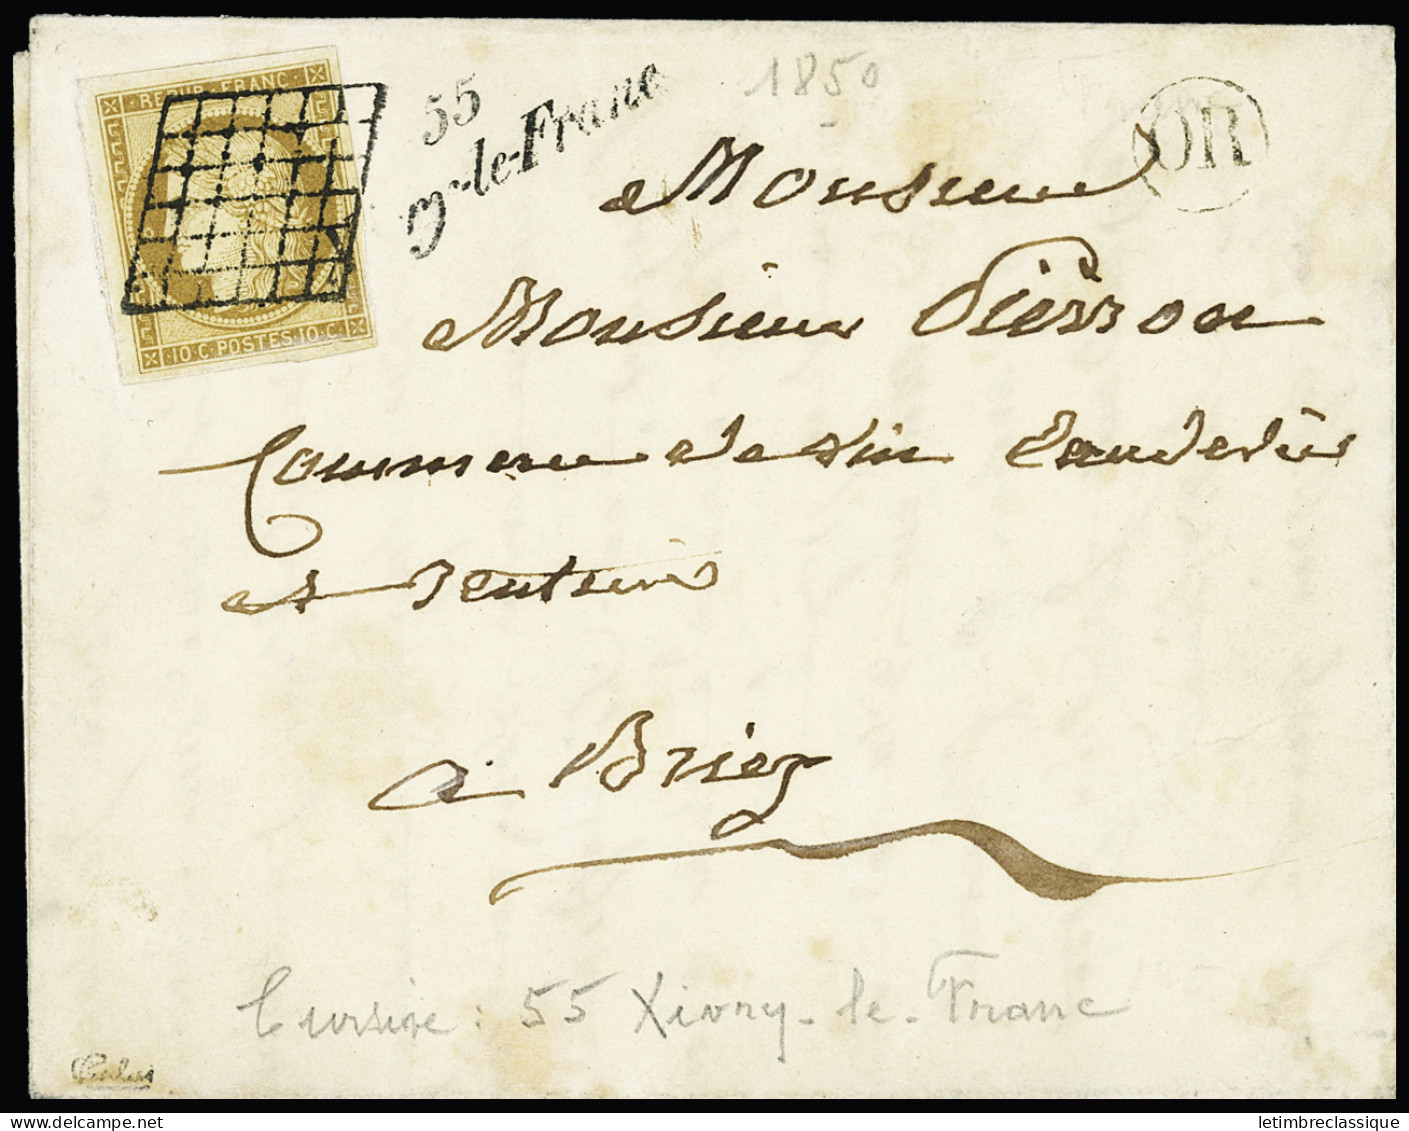 1850
REPUB · FRANC ·
· 10 · C · POSTES · 10 · C ·
55
y-le-Franc
OR
a Monsieur
Monsieur Pierron
Commerce de vin
et
a Briey
Cursive : 55 Xivry-le-Franc
letimbreclassique